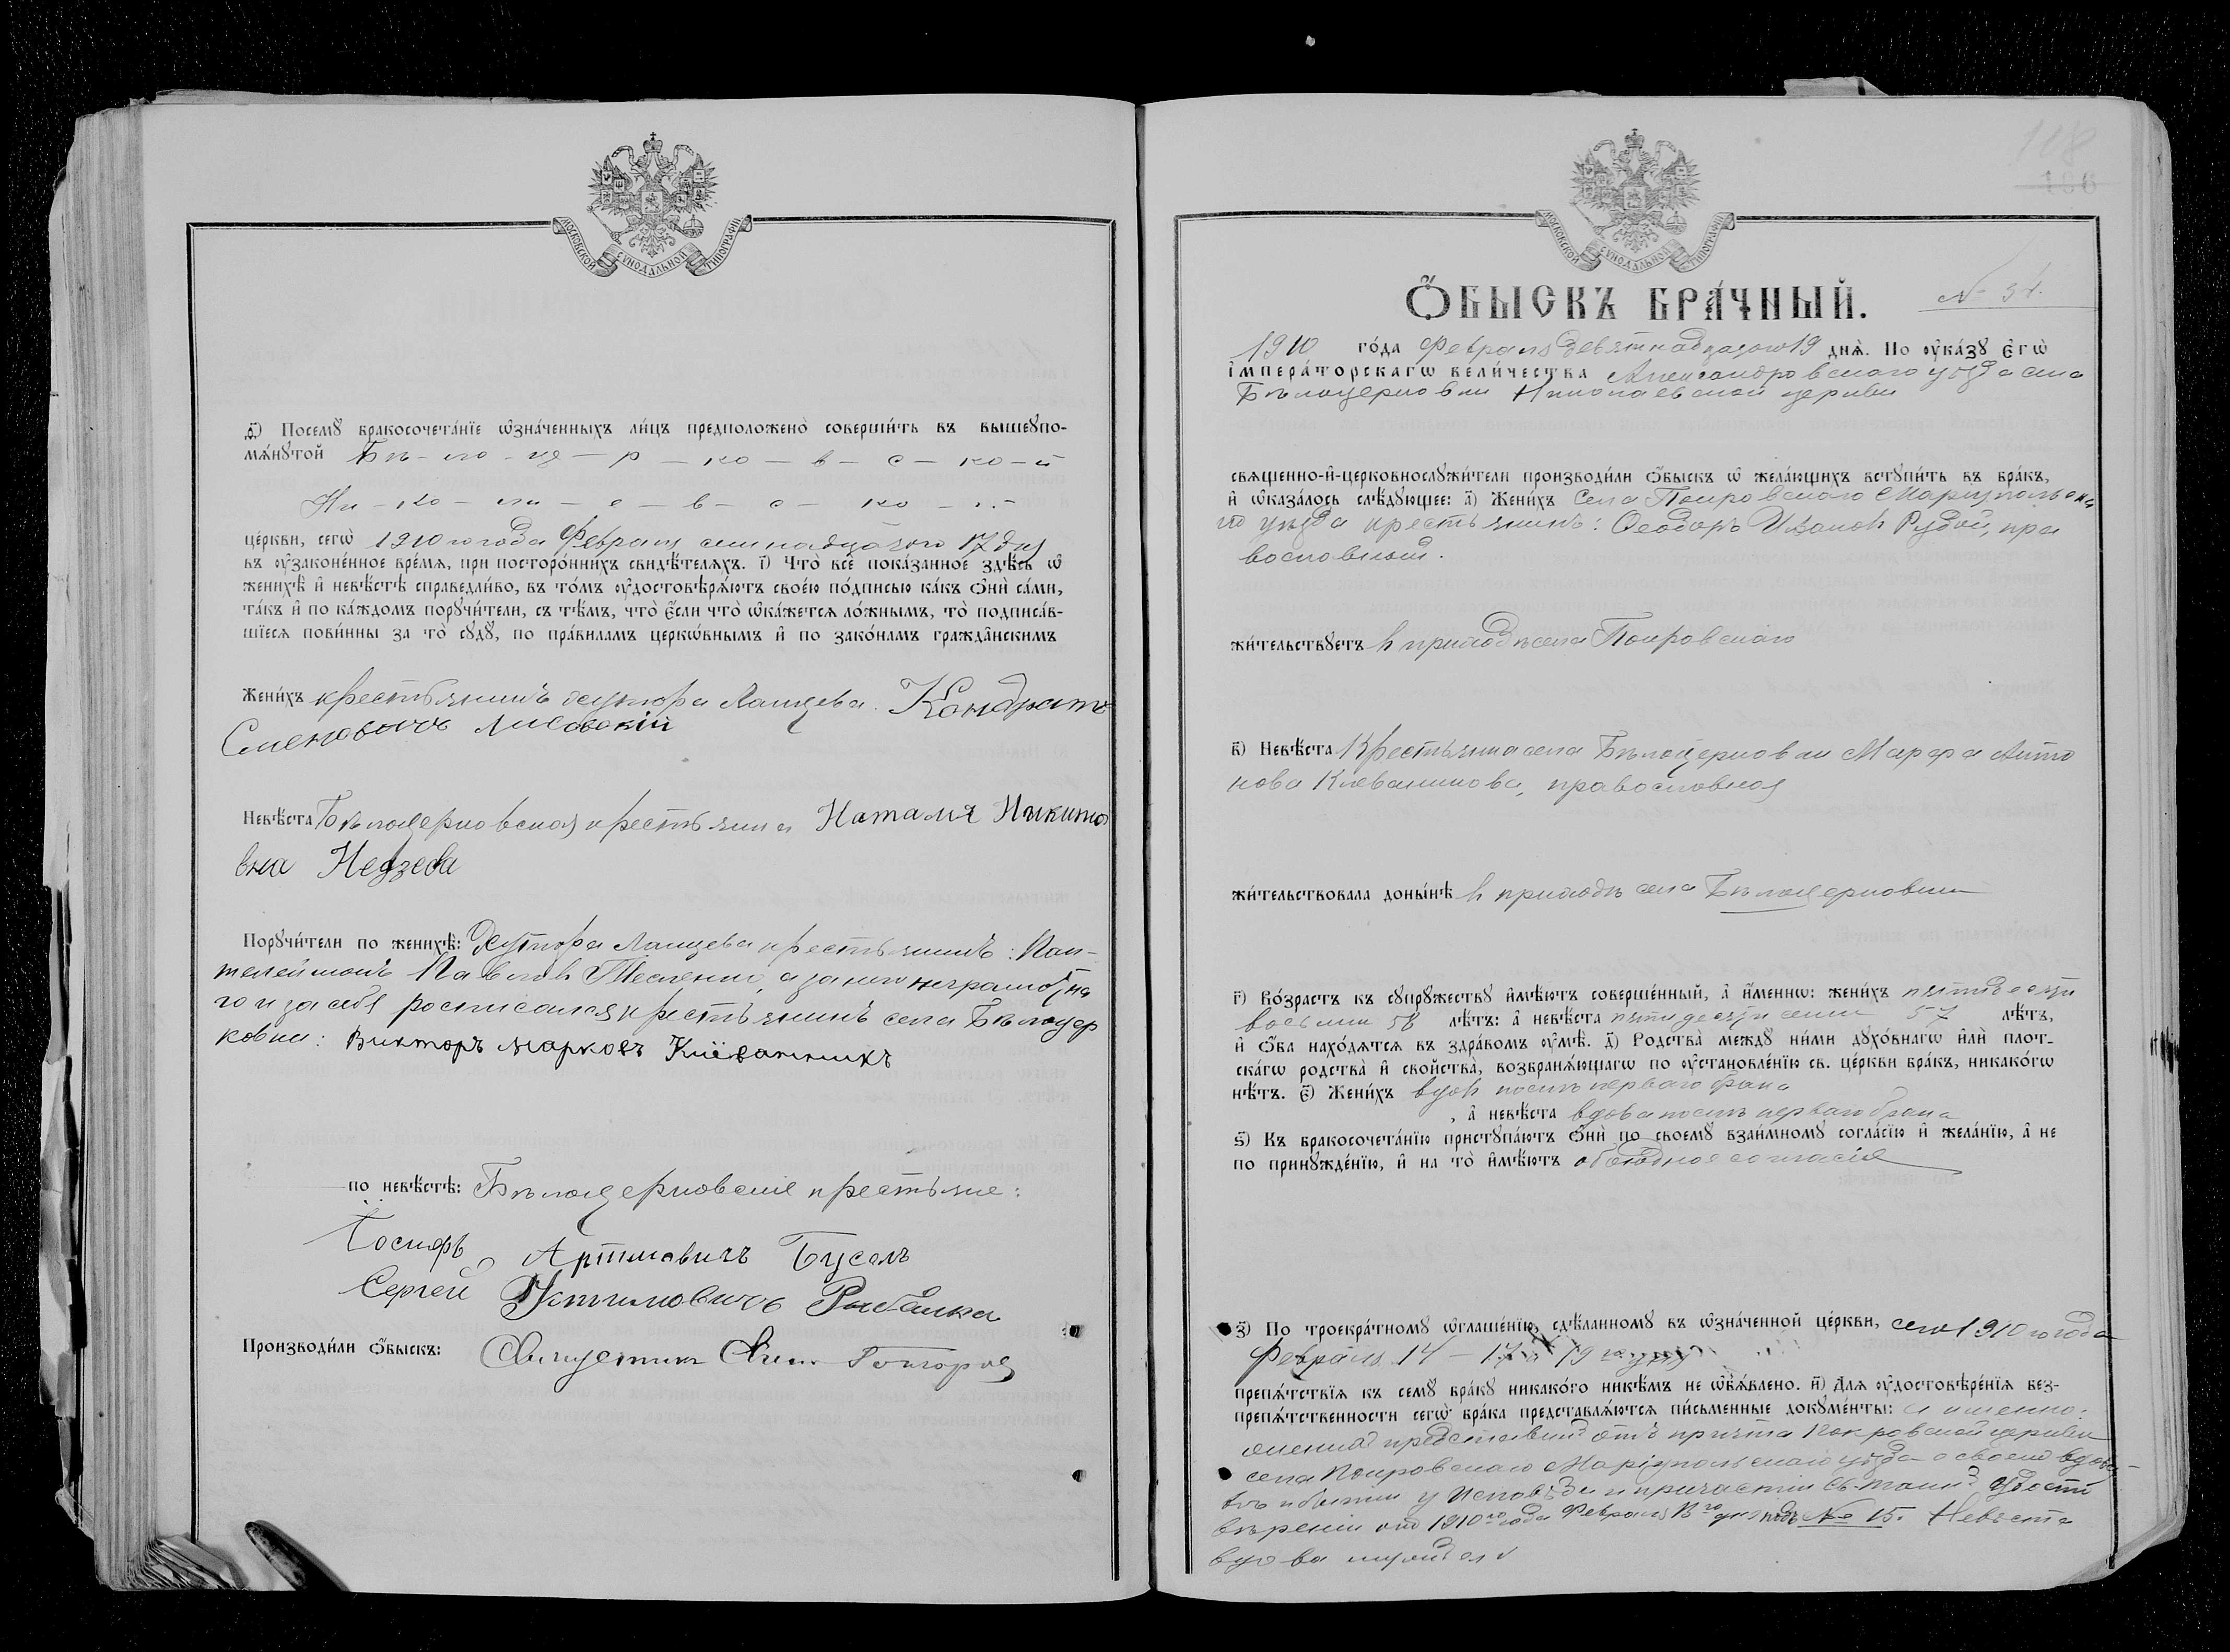 МОСКОВСКОЙ СУНОДАЛЬНОЙ ТИПОГРАФІИ
д҃і) Посемꙋ̀ бракосочета́нїе ѡ҆зна́ченныхъ ли́цъ предположено̀ соверши́ть въ вышеꙋпо-
мѧ́нꙋтой Бѣ-ло-це-р-ко-в-с-ко-й
Ни-ко-ла-е-в-с-ко-й
це́ркви, сегѡ̀ 1910 го года Февраля семнадцатого 17 дня
въ ᲂу҆зако́ненное вре́мѧ, при посторо́ннихъ свидѣ́телѧхъ. і҃) Что̀ всѐ пока́занное здѣ́сь ѡ҆
женихѣ̀ и҆ невѣ́стѣ справедли́во, въ то́мъ ᲂу҆достовѣрѧ́ютъ свое́ю по́дписью ка́къ ѻ҆нѝ са́ми,
та́къ и҆ по ка́ждомъ порꙋчи́тели, съ тѣ́мъ, что̀ є҆́сли что̀ ѡ҆ка́жетсѧ ло́жнымъ, то̀ подписа́в-
шїесѧ пови́нны за то̀ сꙋдꙋ̀, по пра́виламъ церкѡ́внымъ и҆ по зако́намъ гражда̑нскимъ
Жени́хъ крестьянинъ хутора Ланцева. Кондратъ
Семеновичъ Лисовскій
Невѣ́ста Бѣлоцерковская крестьянка Наталя Никито
вна Недзева
Порꙋчи́тели по женихѣ̀: Хутора Ланцева крестьянинъ: Пан-
телеймонъ Павловъ Тесленко, а за него неграмотна
го и за себя росписался крестьянинъ села Бѣлоцер
ковки: Викторъ Марковъ Кіеванникъ
по невѣ́стѣ: Бѣлоцерковскіе крестьяне:
Іосифъ Артимовичъ Бусолъ
Сергей Устимовичъ Рыбалка
Производи́ли ѻ҆́быскъ: Священникъ
118
186
МОСКОВСКОЙ СУНОДАЛЬНОЙ ТИПОГРАФІИ
Ѻ҆́БЫСКЪ БРА́ЧНЫЙ.
№ 34.
1910 го́да Февраля девятнадцатого 19 днѧ̀. По ᲂу҆ка́зꙋ є҆гѡ̀
і҆мпера́торскагѡ вели́чества Александровскаго уѣзда села
Бѣлоцерковки Николаевской церкви
свѧщенно-и҆-церковнослꙋжи́тели производи́ли ѻ҆́быскъ ѡ҆ жела́ющихъ встꙋпи́ть въ бра́къ,
и҆ ѡ҆каза́лось слѣ́дꙋющее: а҃) Жени́хъ Села Покровскаго Маріупольска
го уѣзда крестьянинъ: Ѳеодоръ Ивановъ Рудой, пра
вославный.
жи́тельствꙋетъ въ приходѣ села Покровскаго
в҃) Невѣ́ста Крестьянка села Бѣлоцерковки Марфа Анто
нова Кіеванникова, православная
жи́тельствовала доны́нѣ въ приходѣ села Бѣлоцерковки
г҃) Во́зрастъ къ сꙋпрꙋ́жествꙋ и҆мѣ́ютъ соверше́нный, а҆ и҆́меннѡ: жени́хъ пятидесяти
восьми 58 лѣ́тъ: а҆ невѣ́ста пятидесяти семи 57 лѣ́тъ,
и҆ ѻ҆́ба нахо́дѧтсѧ въ здра́вомъ ᲂу҆мѣ̀. д҃) Родства̀ междꙋ̀ ни́ми дꙋхо́внагѡ и҆лѝ плот-
ска́гѡ родства̀ и҆ сво́йства, возбранѧ́ющагѡ по ᲂу҆становле́нїю св. це́ркви бра́къ, никако́гѡ
нѣ́тъ. є҃) Жени́хъ вдовъ послѣ перваго брака
, а҆ невѣ́ста вдова послѣ перваго брака
ѕ҃) Къ бракосочета́нїю пристꙋпа́ютъ ѻ҆нѝ по своемꙋ̀ взаи́мномꙋ согла́сїю и҆ жела́нїю, а҆ не
по принꙋжде́нїю, и҆ на то̀ и҆мѣ́ютъ обоюдное согласіе
з҃) По троекра́тномꙋ ѡ҆глаше́нїю, сдѣ́ланномꙋ въ ѡ҆зна́ченной це́ркви, сего 1910 го года
Февраля 14 – 17 и 19
препѧ́тствїѧ къ семꙋ̀ бра́кꙋ никако́го никѣ́мъ не ѡ҆б̾ѧ́влено. и҃) Длѧ ᲂу҆достовѣре́нїѧ без-
препѧ́тственности сегѡ̀ бра́ка представлѧ́ютсѧ пи́сьменные докꙋме́нты: а именно:
женихъ представилъ отъ причта Покровской церкви
села Покровскаго Маріупольскаго уѣзда о своемъ вдов-
твѣ и бытии у Исповѣди и причастіи св. таинъ удосто
вѣреніи отъ 1910 го года Февраля дня подъ № 15. Невѣста
вдова